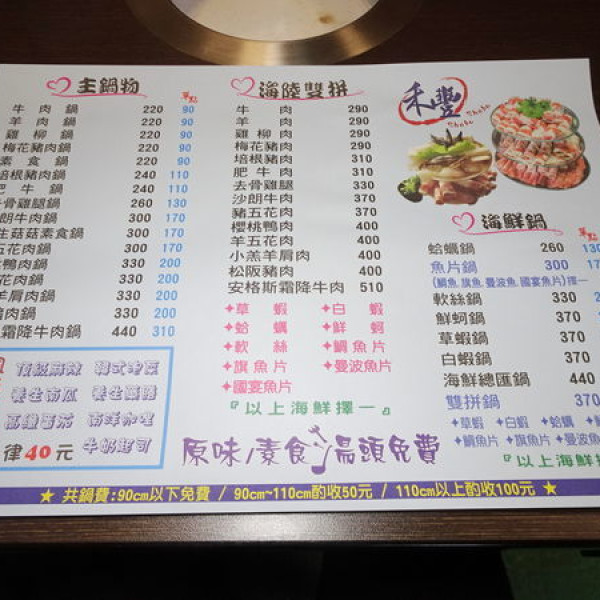 主鍋物
單點
牛肉鍋 220 90
羊肉鍋 220 90
雞柳鍋 220 90
梅花豬肉鍋 220 90
素食鍋 220 90
培根豬肉鍋 240 110
肥牛鍋 240 110
去骨雞腿鍋 260 130
沙朗牛肉鍋 300 170
生菇菇素食鍋 300 170
五花肉鍋 300 170
鴨肉鍋 330 200
花肉鍋 330 200
羊肩肉鍋 330 200
豬肉鍋 330 200
霜降牛肉鍋 440 310
頂級麻辣 韓式泡菜
養生南瓜 養生藥膳
高纖番茄 南洋咖哩
律40元 牛奶起司
海陸雙拼
牛肉 290
羊肉 290
雞柳肉 290
梅花豬肉 290
培根豬肉 310
肥牛肉 310
去骨雞腿 330
沙朗牛肉 370
豬五花肉 370
櫻桃鴨肉 400
羊五花肉 400
小羔羊肩肉 400
松阪豬肉 400
安格斯霜降牛肉 510
✦草蝦 ✦白蝦
✦蛤蠣 ✦鮮蚵
✦軟絲 ✦鯛魚片
✦旗魚片 ✦曼波魚片
✦國宴魚片
『以上海鮮擇一』
禾豐
Shabu Shabu
海鮮鍋
單點
蛤蠣鍋 260 130
魚片鍋 300 170
(鯛魚.旗魚.曼波魚.國宴魚片)擇一
軟絲鍋 330
鮮蚵鍋 330
草蝦鍋 370
白蝦鍋 370
海鮮總匯鍋 440
雙拼鍋 370
✦草蝦 ✦白蝦 ✦蛤蠣
✦鯛魚片 ✦旗魚片 ✦曼波魚
『以上海鮮
原味/素食 湯頭免費
★ 共鍋費:90cm以下免費 / 90cm~110cm酌收50元 / 110cm以上酌收100元 ★